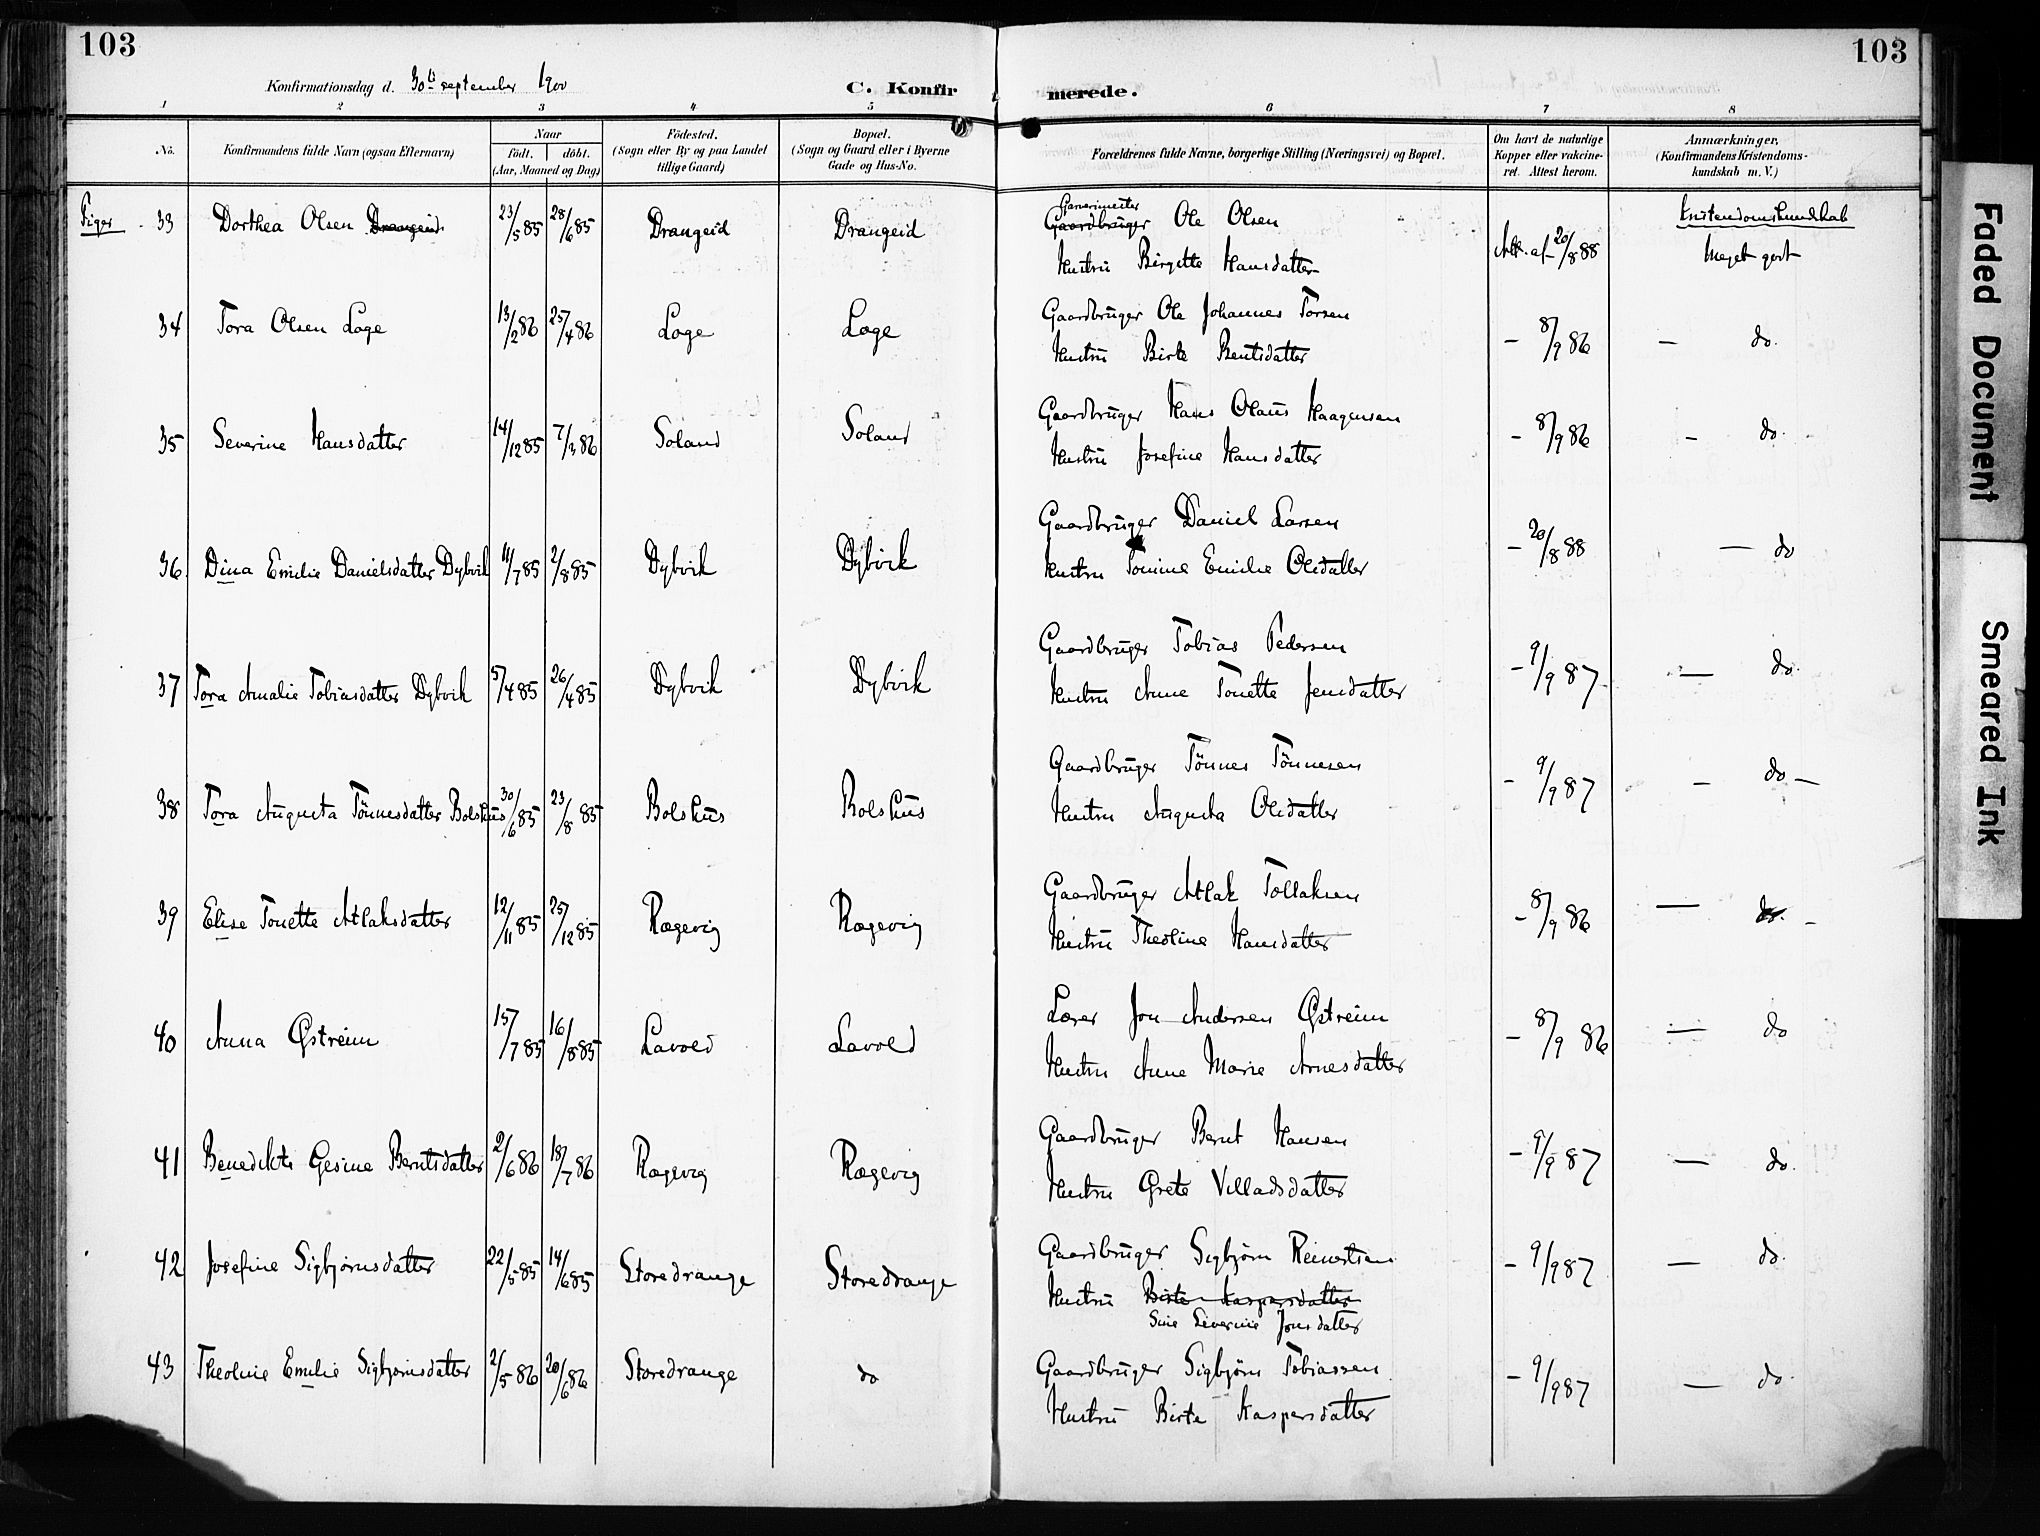 103
103
Konfirmationsdag d. 30te september 1900
C. Konfirmerede.
1 2 3 4 5 6 7 8
No. Konfirmandens fulde Navn (ogsaa Efternavn) Naar födt. döbt. (Aar, Maaned og Dag) Födested. (Sogn eller By og paa Landet tillige Gaard) Bopæl. (Sogn og Gaard eller i Byerne Gade og Hus-No. Forældrenes fulde Navne, borgerlige Stilling (Næringsvei) og Bopæl. Om havt de naturlige Kopper eller vakcineret. Attest herom. Anmærkninger. (Konfirmandens Kristendomskundskab m. V.)
Piger 33 Dorthea Olsen Drangeid 23/5 85 28/6 85 Drangeid Drangeid Garvermester Gaardbruger Ole Olsen Att. af 20/8 88 Kristendomskundskab
Hustru Birgitte Hansdatter Meget godt
34 Tora Olsen Loge 13/2 86 25/4 86 Loge Loge Gaardbruger Ole Johannes Torsen - 8/9 86 - do.
Hustru Birte Bentsdatter
35 Severine Hansdatter 14/12 85 7/3 86 Soland Soland Gaardbruger Hans Olaus Haagensen - 8/9 86 - do.
Hustru Josefine Hansdatter
36 Dina Emilie Danielsdatter Dybvik 11/7 85 2/8 85 Dybvik Dybvik Gaardbruger Daniel Larsen - 20/8 88 - do
Hustru Tomine Emilie Olsdatter
37 Tora Amalie Tobiasdatter Dybvik 5/4 85 26/4 85 Dybvik Dybvik Gaardbruger Tobias Pedersen - 9/9 87 - do.
Hustru Anne Tonette Jensdatter
38 Tora Augusta Tönnesdatter Bolshus 30/6 85 23/8 85 Bolshus Bolshus Gaardbruger Tönnes Tönnesen - 9/9 87 - do -
Hustru Augusta Olsdatter
39 Elise Tonette Atlaksdatter 12/11 85 25/12 85 Rægevig Rægevig Gaardbruger Atlak Tollaksen - 8/9 86 - do. -
Hustru Theoline Hansdatter
40 Anna Østreim 15/7 85 16/8 85 Lavold Lavold Lærer Jon Andersen Østreim - 8/9 86 - do
Hustru Anne Marie Arnesdatter
41 Benedikte Gesine Berntsdatter 2/6 86 18/7 86 Rægevig Rægevig Gaardbruger Bernt Hansen - 9/9 87 - do.
Hustru Grete Villadsdatter
42 Josefine Sigbjørnsdatter 22/5 85 14/6 85 Storedrange Storedrange Gaardbruger Sigbjørn Reinertsen - 9/9 87 - do.
Hustru Birte Kaspersdatter
Sine Severine Jonsdatter
43 Theoline Emilie Sigbjørnsdatter 2/5 86 20/6 86 Storedrange do Gaardbruger Sigbjørn Tobiassen - 9/9 87 - do.
Hustru Birte Kaspersdatter
Faded Document
Smeared Ink